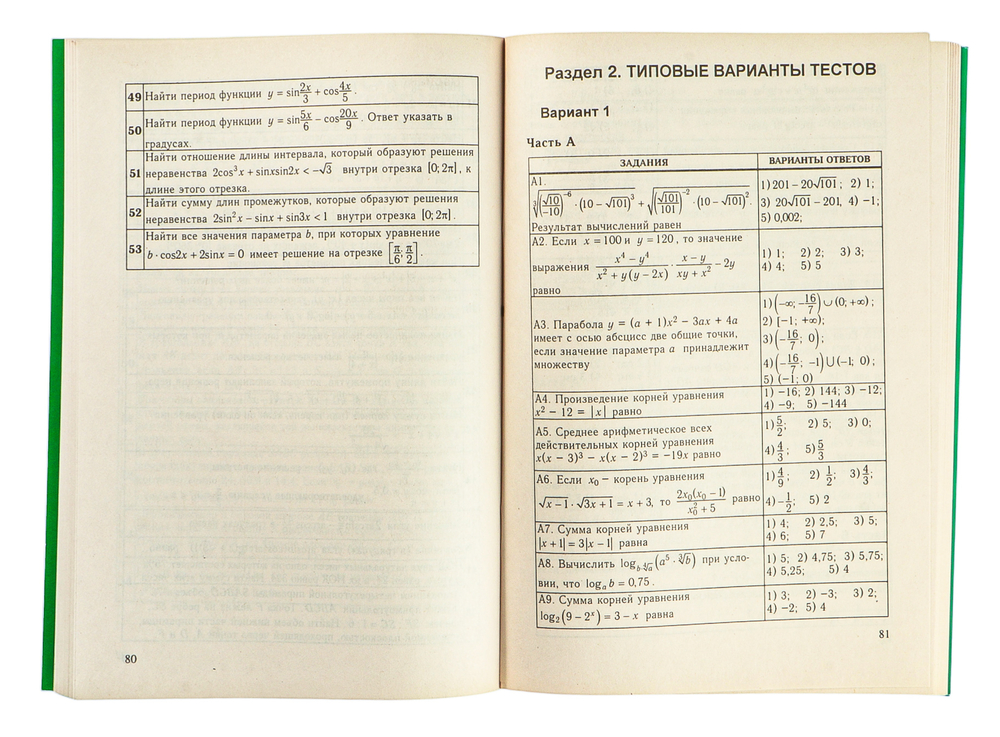 49 Найти период функции y = sin 2x/3 + cos 4x/5 .
50 Найти период функции y = sin 5x/6 − cos 20x/9 . Ответ указать в
градусах.
51 Найти отношение длины интервала, который образуют решения
неравенства 2cos³x + sinxsin2x < −√3 внутри отрезка [0; 2π], к
длине этого отрезка.
52 Найти сумму длин промежутков, которые образуют решения
неравенства 2sin²x − sinx + sin3x < 1 внутри отрезка [0; 2π] .
53 Найти все значения параметра b, при которых уравнение
b · cos2x + 2sinx = 0 имеет решение на отрезке [π/6; π/2].
80
Раздел 2. ТИПОВЫЕ ВАРИАНТЫ ТЕСТОВ
Вариант 1
Часть А
ЗАДАНИЯ ВАРИАНТЫ ОТВЕТОВ
А1.
∛((√10/−10)⁻⁶ · (10 − √101)³) + √((√101/101)⁻² · (10 − √101)²).
Результат вычислений равен
1) 201 − 20√101 ; 2) 1;
3) 20√101 − 201, 4) −1;
5) 0,002;
А2. Если x = 100 и y = 120, то значение
выражения (x⁴ − y⁴)/(x² + y(y − 2x)) · (x − y)/(xy + x²) − 2y
равно
1) 1; 2) 2; 3) 3;
4) 4; 5) 5
А3. Парабола y = (a + 1)x² − 3ax + 4a
имеет с осью абсцисс две общие точки,
если значение параметра a принадлежит
множеству
1) (−∞; −16/7) ∪ (0; +∞) ;
2) [−1; +∞);
3) (−16/7; 0);
4) (−16/7; −1) ∪ (−1; 0);
5) (−1; 0)
А4. Произведение корней уравнения
x² − 12 = |x| равно
1) −16; 2) 144; 3) −12;
4) −9; 5) −144
А5. Среднее арифметическое всех
действительных корней уравнения
x(x − 3)³ − x(x − 2)³ = −19x равно
1) 5/2; 2) 5; 3) 0;
4) 4/3; 5) 5/3
А6. Если x₀ − корень уравнения
√x − 1 · √3x + 1 = x + 3, то 2x₀(x₀ − 1)/(x₀² + 5) равно
1) 4/9; 2) 1/2; 3) 4/3;
4) −1/2; 5) 2
А7. Сумма корней уравнения
|x + 1| = 3|x − 1| равна
1) 4; 2) 2,5; 3) 5;
4) 6; 5) 7
А8. Вычислить log b·∜a (a⁵ · ∛b) при усло-
вии, что logₐ b = 0,75 .
1) 5; 2) 4,75; 3) 5,75;
4) 5,25; 5) 4
А9. Сумма корней уравнения
log₂(9 − 2ˣ) = 3 − x равна
1) 3; 2) −3; 3) 2;
4) −2; 5) 4
81